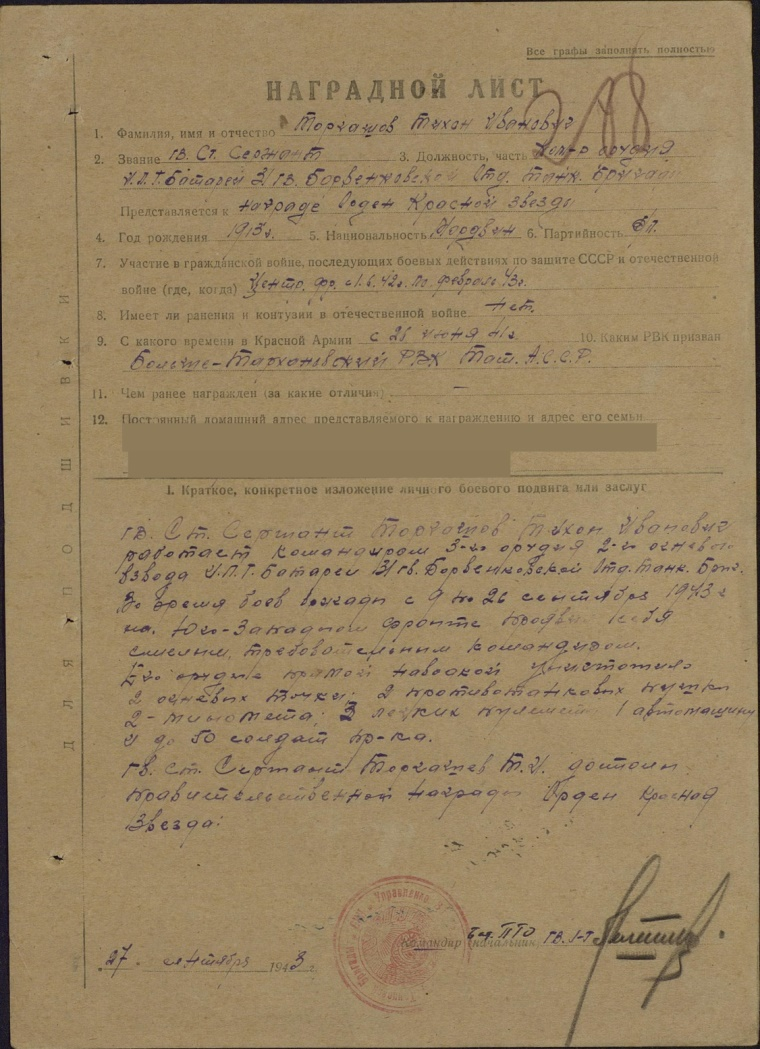 Все графы заполнять полностью
НАГРАДНОЙ ЛИСТ
1. Фамилия, имя и отчество Торгашов Тихон Иванович
2. Звание Гв. Ст. Сержант 3. Должность, часть Ком-р орудия
И.П.Т. Батареи 31 гв. Борвенковской Отд. танк. Бригады
Представляется к награде Орден Красной Звезды
4. Год рождения 1913 г. 5. Национальность Мордвин 6. Партийность б/п.
7. Участие в гражданской войне, последующих боевых действиях по защите СССР и отечественной
войне (где, когда) Центр. фр. с 1.6.42г. по февраль 43г.
8. Имеет ли ранения и контузии в отечественной войне Нет.
9. С какого времени в Красной Армии с 26 июня 41г 10. Каким РВК призван
Больше-Тархановский РВК Тат. А.С.С.Р.
11. Чем ранее награжден (за какие отличия) —
12. Постоянный домашний адрес представляемого к награждению и адрес его семьи
I. Краткое, конкретное изложение личного боевого подвига или заслуг
Гв. Ст. Сержант Торгашов Тихон Иванович
работает командиром 3-го орудия 2-го огневого
взвода И.П.Т. Батареи 31 гв. Борвенковской Отд. танк. Бриг.
Во время боев бригады с 9 по 26 сентября 1943 г
на Юго-Западном фронте проявил себя
смелым, требовательным командиром.
Его орудие прямой наводкой уничтожило
2 огневых точки; 2 противотанковых пушки
2-миномета; 3 легких пулемета 1 автомашину
и до 50 солдат пр-ка.
Гв. Ст. Сержант Торгашов Т.И. достоин
правительственной награды Орден Красная
Звезда.
Командир (начальник) Бат. ПТО гв.
27 сентября 1943
ДЛЯ ПОДШИВКИ